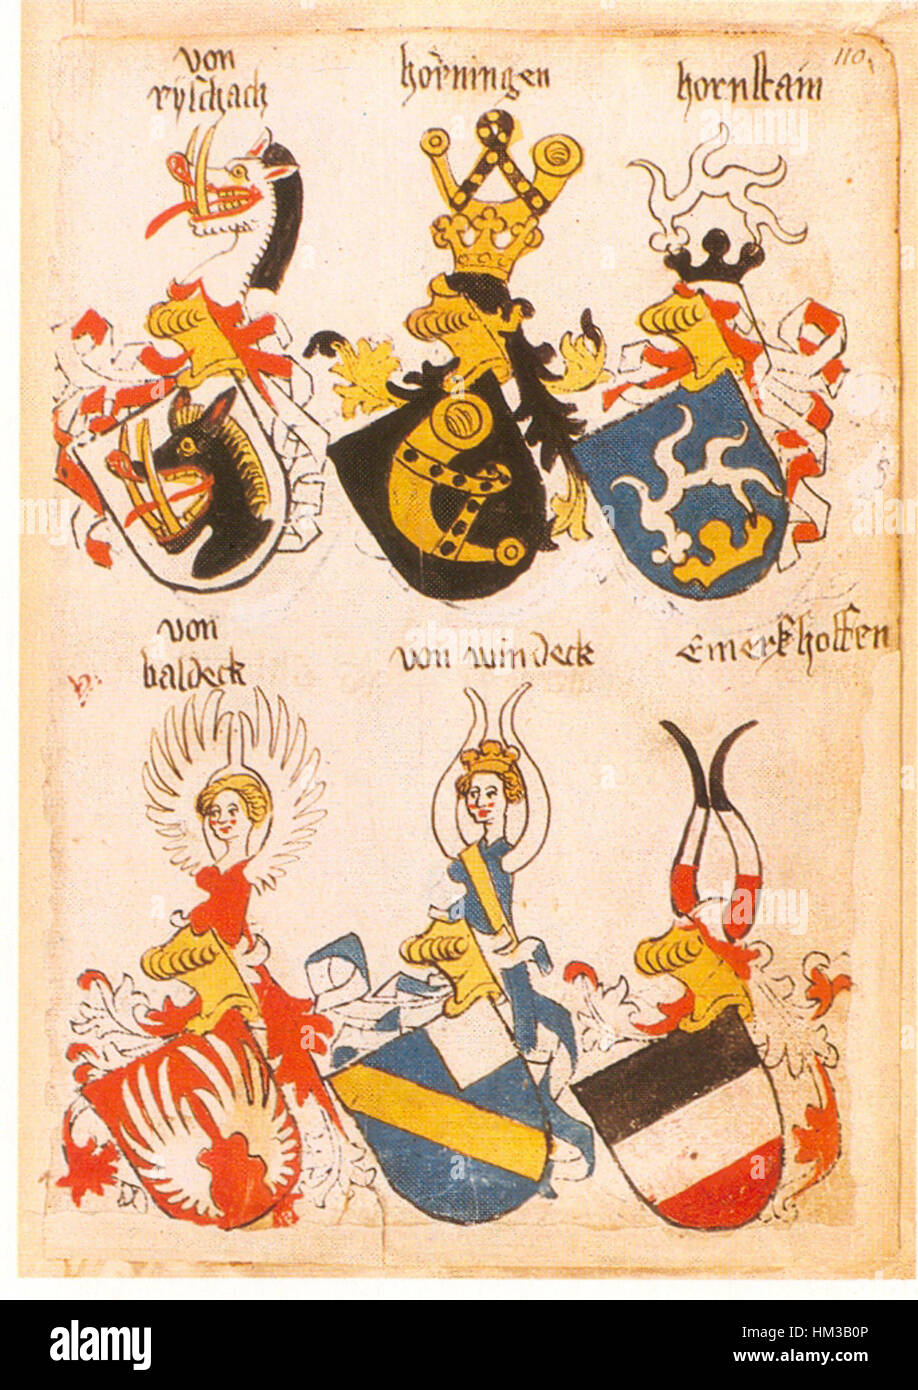 110
von
ryschach
hörningen
hornstain
von
baldeck
von windeck
Emerkhoffen
alamy
Image ID: HM3B0P
www.alamy.com